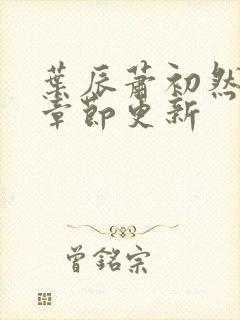 葉辰蕭初然
章節更新
曾銘宗